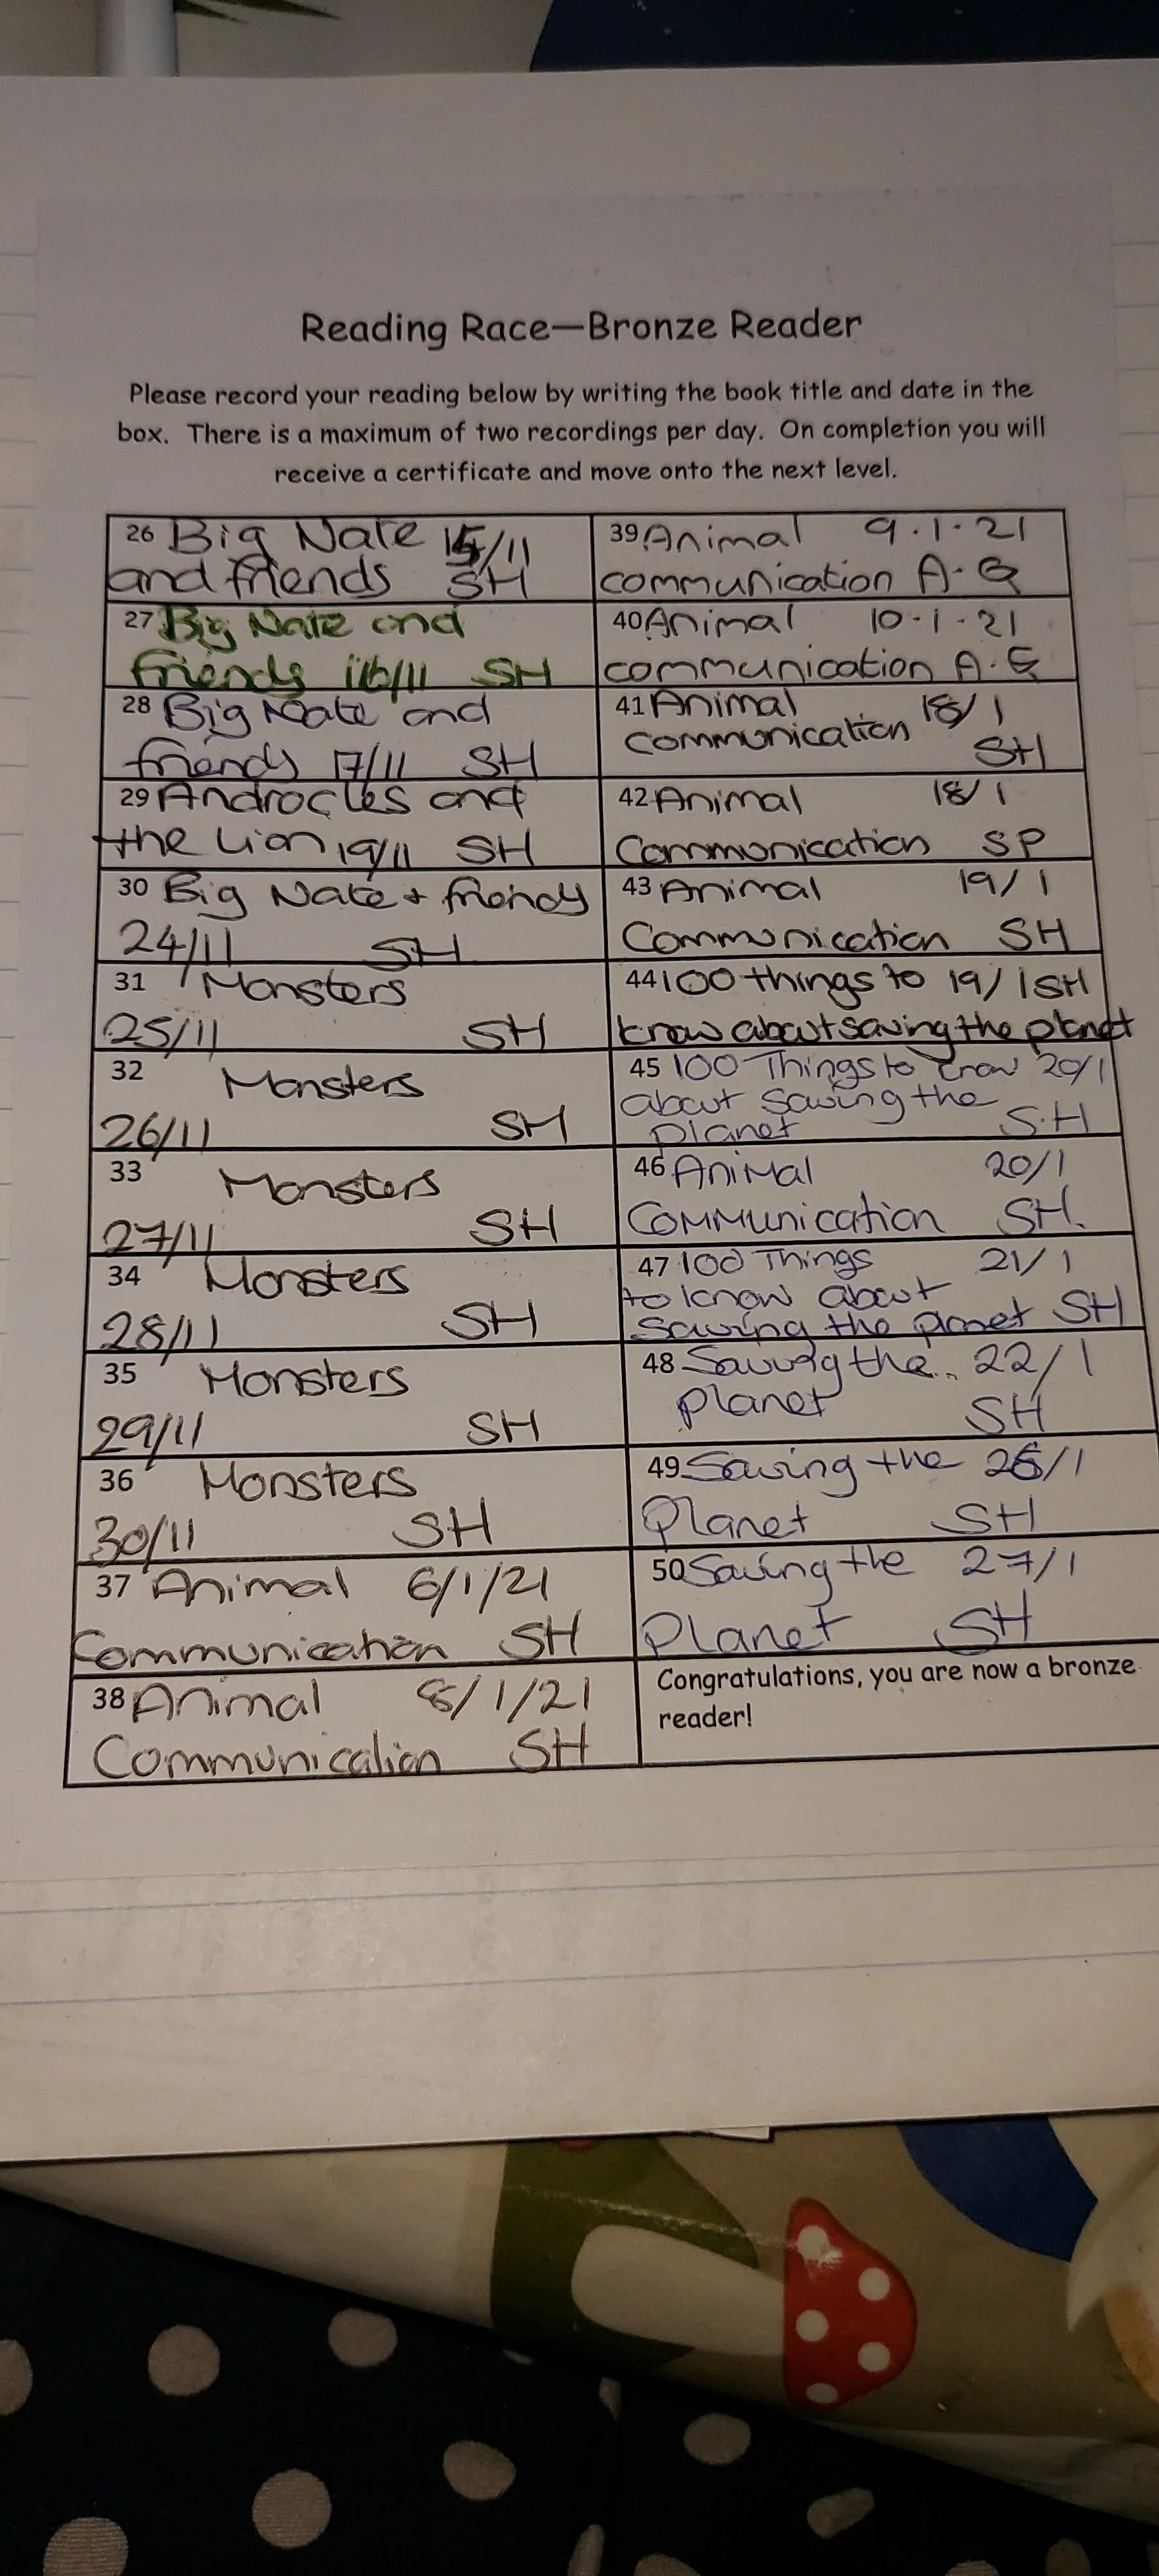 Reading Race—Bronze Reader
Please record your reading below by writing the book title and date in the
box. There is a maximum of two recordings per day. On completion you will
receive a certificate and move onto the next level.
26 Big Nate 15/11
and friends SH
27 Big Nate and
friends 16/11 SH
28 Big Nate and
friends 17/11 SH
29 Androcles and
the Lion 19/11 SH
30 Big Nate + friends
24/11 SH
31 Monsters
25/11 SH
32 Monsters
26/11 SH
33 Monsters
27/11 SH
34 Monsters
28/11 SH
35 Monsters
29/11 SH
36 Monsters
30/11 SH
37 Animal 6/1/21
Communication SH
38 Animal 8/1/21
Communication SH
39 Animal 9.1.21
communication A.G
40 Animal 10.1.21
communication A.G
41 Animal 18/1
communication
SH
42 Animal 18/1
Communication SP
43 Animal 19/1
Communication SH
44 100 things to 19/1 SH
know about saving the planet
45 100 Things to know 20/1
about saving the
planet S.H
46 Animal 20/1
Communication SH.
47 100 Things 21/1
to know about
saving the planet SH
48 Saving the 22/1
planet SH
49 Saving the 26/1
Planet SH
50 Saving the 27/1
Planet SH
Congratulations, you are now a bronze
reader!